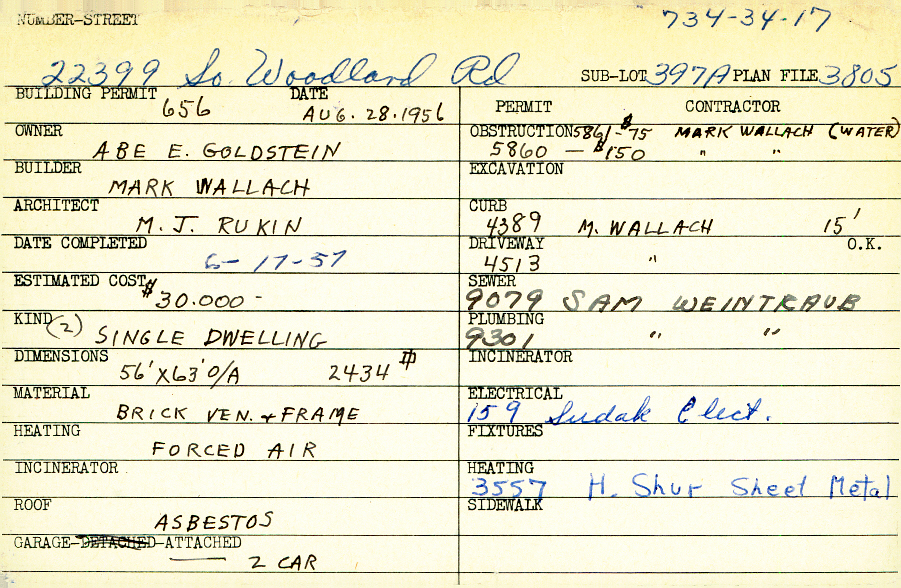 NUMBER-STREET 734-34-17
22399 So. Woodland Rd SUB-LOT 397A PLAN FILE 3805
BUILDING PERMIT 656 DATE AUG. 28. 1956
OWNER ABE E. GOLDSTEIN
BUILDER MARK WALLACH
ARCHITECT M. J. RUKIN
DATE COMPLETED 6-17-57
ESTIMATED COST $30.000-
KIND (2) SINGLE DWELLING
DIMENSIONS 56'X63' O/A 2434 #
MATERIAL BRICK VEN. + FRAME
HEATING FORCED AIR
INCINERATOR
ROOF ASBESTOS
GARAGE-DETACHED-ATTACHED
2 CAR
PERMIT CONTRACTOR
OBSTRUCTION 5861-$75 MARK WALLACH (WATER)
5860 - $150 " "
EXCAVATION
CURB 4389 M. WALLACH 15'
DRIVEWAY 4513 " O.K.
SEWER
9079 SAM WEINTRAUB
PLUMBING
9301 " "
INCINERATOR
ELECTRICAL
159 Sudak Elect.
FIXTURES
HEATING
3557 H. Shur Sheet Metal
SIDEWALK